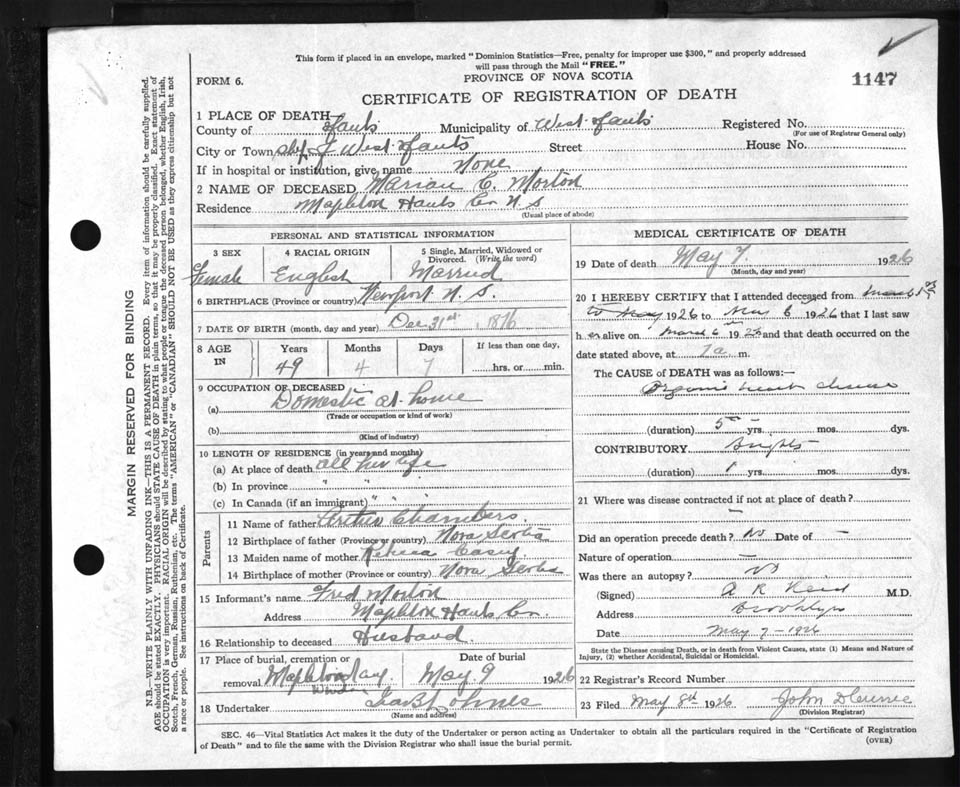 This form if placed in an envelope, marked "Dominion Statistics—Free, penalty for improper use $300," and properly addressed
will pass through the Mail "FREE."
FORM 6.
PROVINCE OF NOVA SCOTIA
1147
CERTIFICATE OF REGISTRATION OF DEATH
1 PLACE OF DEATH—
County of Hants Municipality of West Hants Registered No.
(For use of Registrar General only)
City or Town of West Hants Street House No.
If in hospital or institution, give name None
2 NAME OF DECEASED Marian C. Morton
Residence Mapleton Hants Co. N. S
(Usual place of abode)
PERSONAL AND STATISTICAL INFORMATION
3 SEX
Female
4 RACIAL ORIGIN
English
5 Single, Married, Widowed or
Divorced. (Write the word)
Married
6 BIRTHPLACE (Province or country) Newport N. S.
7 DATE OF BIRTH (month, day and year) Dec 31st, 1876
8 AGE
IN
Years
49
Months
4
Days
7
If less than one day,
hrs. or min.
9 OCCUPATION OF DECEASED
(a) Domestic at home
(Trade or occupation or kind of work)
(b)
(Kind of industry)
10 LENGTH OF RESIDENCE (in years and months)
(a) At place of death all her life
(b) In province " " "
(c) In Canada (if an immigrant) " " "
Parents
11 Name of father Chambers
12 Birthplace of father (Province or country) Nova Scotia
13 Maiden name of mother Casey
14 Birthplace of mother (Province or country) Nova Scotia
15 Informant's name Fred Morton
Address Mapleton Hants Co.
16 Relationship to deceased Husband
17 Place of burial, cremation or
removal
Date of burial
May 9 1926
18 Undertaker
(Name and address)
MEDICAL CERTIFICATE OF DEATH
19 Date of death May 7. 1926
(Month, day and year)
20 I HEREBY CERTIFY that I attended deceased from
1926 to 6 1926 that I last saw
h er alive on March 6 192 and that death occurred on
the date stated above, at 7a m.
The CAUSE of DEATH was as follows:—
Organic heart disease
(duration) 5 yrs. mos. dys.
CONTRIBUTORY Brights
(duration) 1 yrs. mos. dys.
21 Where was disease contracted if not at place of death?
—
Did an operation precede death? No Date of —
Nature of operation —
Was there an autopsy? No
(Signed) A R Reid M.D.
Address Brooklyn
Date May 7 - 1926
State the Disease causing Death, or in death from Violent Causes, state (1) Means and Nature of
Injury, (2) whether Accidental, Suicidal or Homicidal.
22 Registrar's Record Number
23 Filed May 8th 1926 John
(Division Registrar)
SEC. 46—Vital Statistics Act makes it the duty of the Undertaker or person acting as Undertaker to obtain all the particulars required in the "Certificate of Registration
of Death" and to file the same with the Division Registrar who shall issue the burial permit.
(OVER)
MARGIN RESERVED FOR BINDING
N.B.—WRITE PLAINLY WITH UNFADING INK—THIS IS A PERMANENT RECORD. Every item of information should be carefully supplied.
AGE should be stated EXACTLY. PHYSICIANS should STATE CAUSE OF DEATH in plain terms, so that it may be properly classified. Exact statement of
OCCUPATION is very important. RACIAL ORIGIN will be described by stating to what people or tongue the deceased person belonged, whether English, Irish,
Scotch, French, German, Russian, Ruthenian, etc. The terms "AMERICAN" or "CANADIAN" SHOULD NOT BE USED as they express citizenship but not
a race or people. See instructions on back of Certificate.